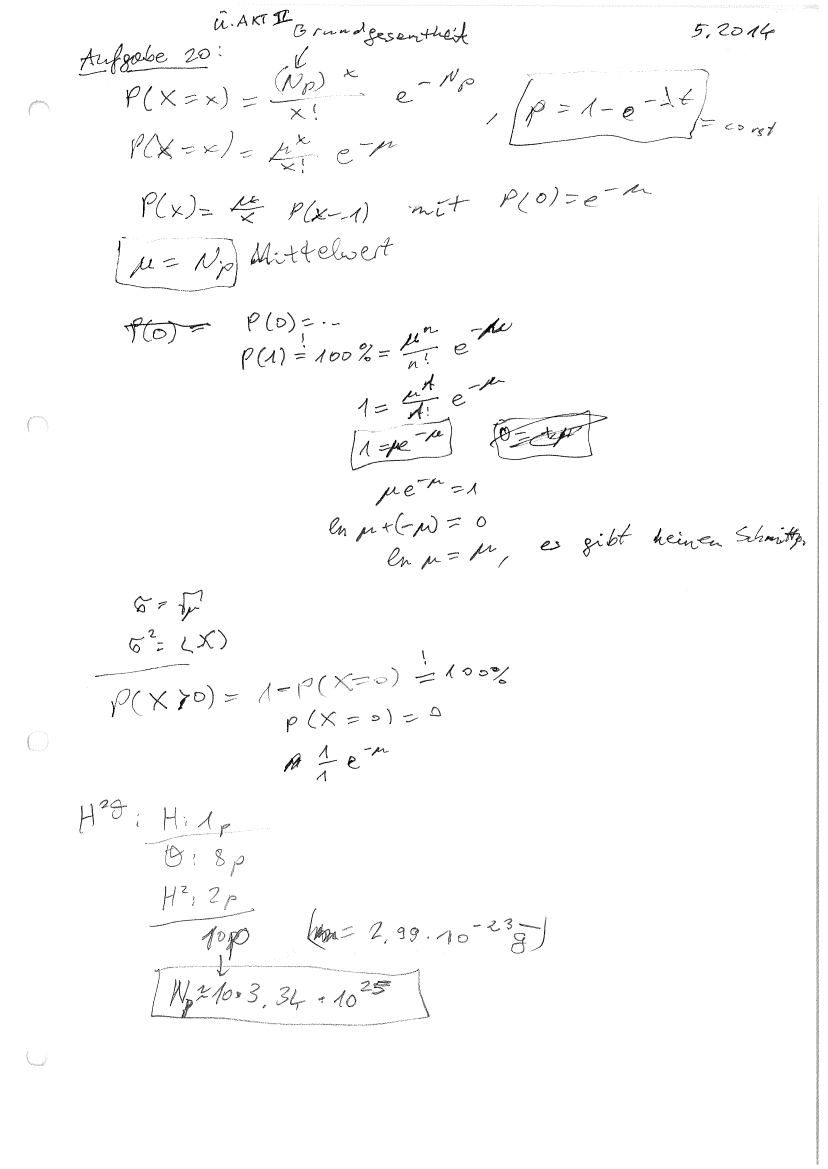 Ü. AKT II
Grundgesamtheit
5.2014
Aufgabe 20:
P(X=x) = (Np)^x / x! e^-Np , p = 1 - e^-λt = const
P(X=x) = μ^x / x! e^-μ
P(x) = μ/x P(x-1) mit P(0) = e^-μ
μ = Np Mittelwert
P(0) = P(0) = ..
P(1) =! 100% = μ^n / n! e^-μ
1 = μ^1 / 1! e^-μ
1 = μe^-μ
μe^-μ = 1
ln μ + (-μ) = 0
ln μ = μ, es gibt keinen Schnittp.
σ = √μ
σ² = ⟨X⟩
P(X>0) = 1 - P(X=0) =! 100%
P(X=0) = 0
1/1 e^-μ
H²O: H: 1p
O: 8p
H²: 2p
10p (m = 2,99 · 10^-23 g)
Np ≈ 10 · 3,34 · 10^25